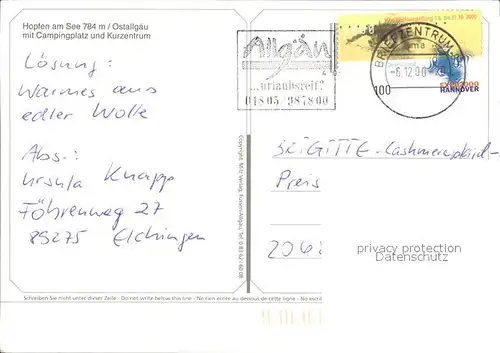 Hopfen am See 784 m / Ostallgäu
mit Campingplatz und Kurzentrum
Lösung:
Warmes aus
edler Wolle
Abs.:
Ursula Knapp
Föhrenweg 27
89275 Elchingen
Allgäu
...urlaubsreif?
01805/987800
BRIEFZENTRUM
-6.12.00
100
EXPO2000
HANNOVER
BRIGITTE-Cashmereplaid-
Preis
2068
privacy protection
Datenschutz
Schreiben Sie nicht unter dieser Zeile - Do not write below this line - Ne rien écrire au dessous de cette ligne - No escriba